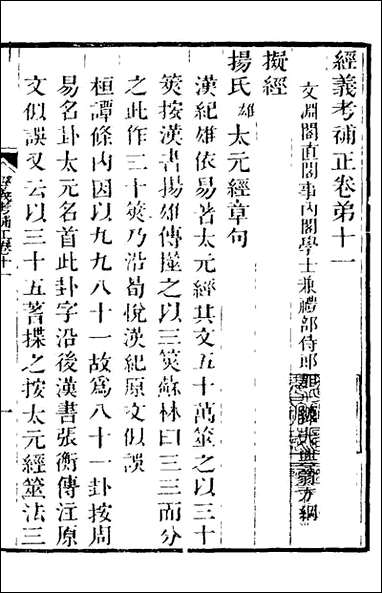 經義考補正卷弟十一
文淵閣直閣事內閣學士兼禮部侍郎 翁方綱
擬經
揚氏雄太元經章句
漢紀雄依易著太元經其文五十萬筮之以三十
筴按漢書揚雄傳㨻之以三筴蘇林曰三三而分
之此作三十筴乃沿荀悅漢紀原文似誤
桓譚條內因以九九八十一故爲八十一卦按周
易名卦太元名首此卦字沿後漢書張衡傳注原
文似誤又云以三十五蓍揲之按太元經筮法三
經義考補正卷十一
一